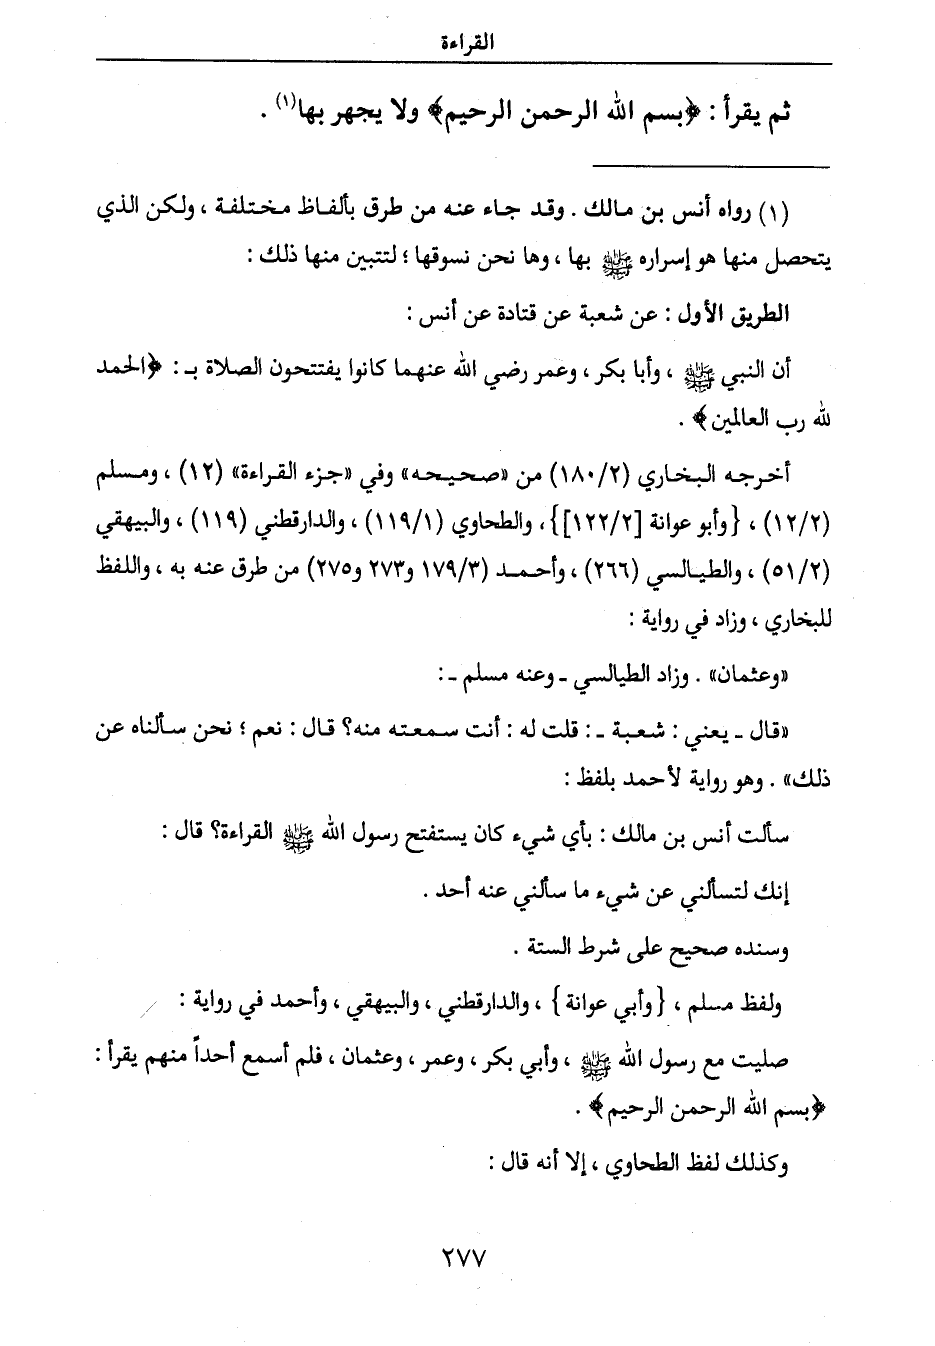 القراءة
ثم يقرأ : ﴿بسم الله الرحمن الرحيم﴾ ولا يجهر بها(١) .
(١) رواه أنس بن مالك . وقد جاء عنه من طرق بألفاظ مختلفة ، ولكن الذي
يتحصل منها هو إسراره ﷺ بها ، وها نحن نسوقها ؛ لتتبين منها ذلك :
الطريق الأول : عن شعبة عن قتادة عن أنس :
أن النبي ﷺ ، وأبا بكر ، وعمر رضي الله عنهما كانوا يفتتحون الصلاة بـ : ﴿الحمد
لله رب العالمين﴾ .
أخرجه البخاري (١٨٠/٢) من «صحيحه» وفي «جزء القراءة» (١٢) ، ومسلم
(١٢/٢) ، {وأبو عوانة [١٢٢/٢]}، والطحاوي (١١٩/١) ، والدارقطني (١١٩) ، والبيهقي
(٥١/٢) ، والطيالسي (٢٦٦) ، وأحمد (١٧٩/٣ و٢٧٣ و٢٧٥) من طرق عنه به ، واللفظ
للبخاري ، وزاد في رواية :
«وعثمان» . وزاد الطيالسي ـ وعنه مسلم ـ :
«قال ـ يعني : شعبة ـ : قلت له : أنت سمعته منه؟ قال : نعم ؛ نحن سألناه عن
ذلك» . وهو رواية لأحمد بلفظ :
سألت أنس بن مالك : بأي شيء كان يستفتح رسول الله ﷺ القراءة؟ قال :
إنك لتسألني عن شيء ما سألني عنه أحد .
وسنده صحيح على شرط الستة .
ولفظ مسلم ، {وأبي عوانة} ، والدارقطني ، والبيهقي ، وأحمد في رواية :
صليت مع رسول الله ﷺ ، وأبي بكر ، وعمر ، وعثمان ، فلم أسمع أحداً منهم يقرأ :
﴿بسم الله الرحمن الرحيم﴾ .
وكذلك لفظ الطحاوي ، إلا أنه قال :
٢٧٧